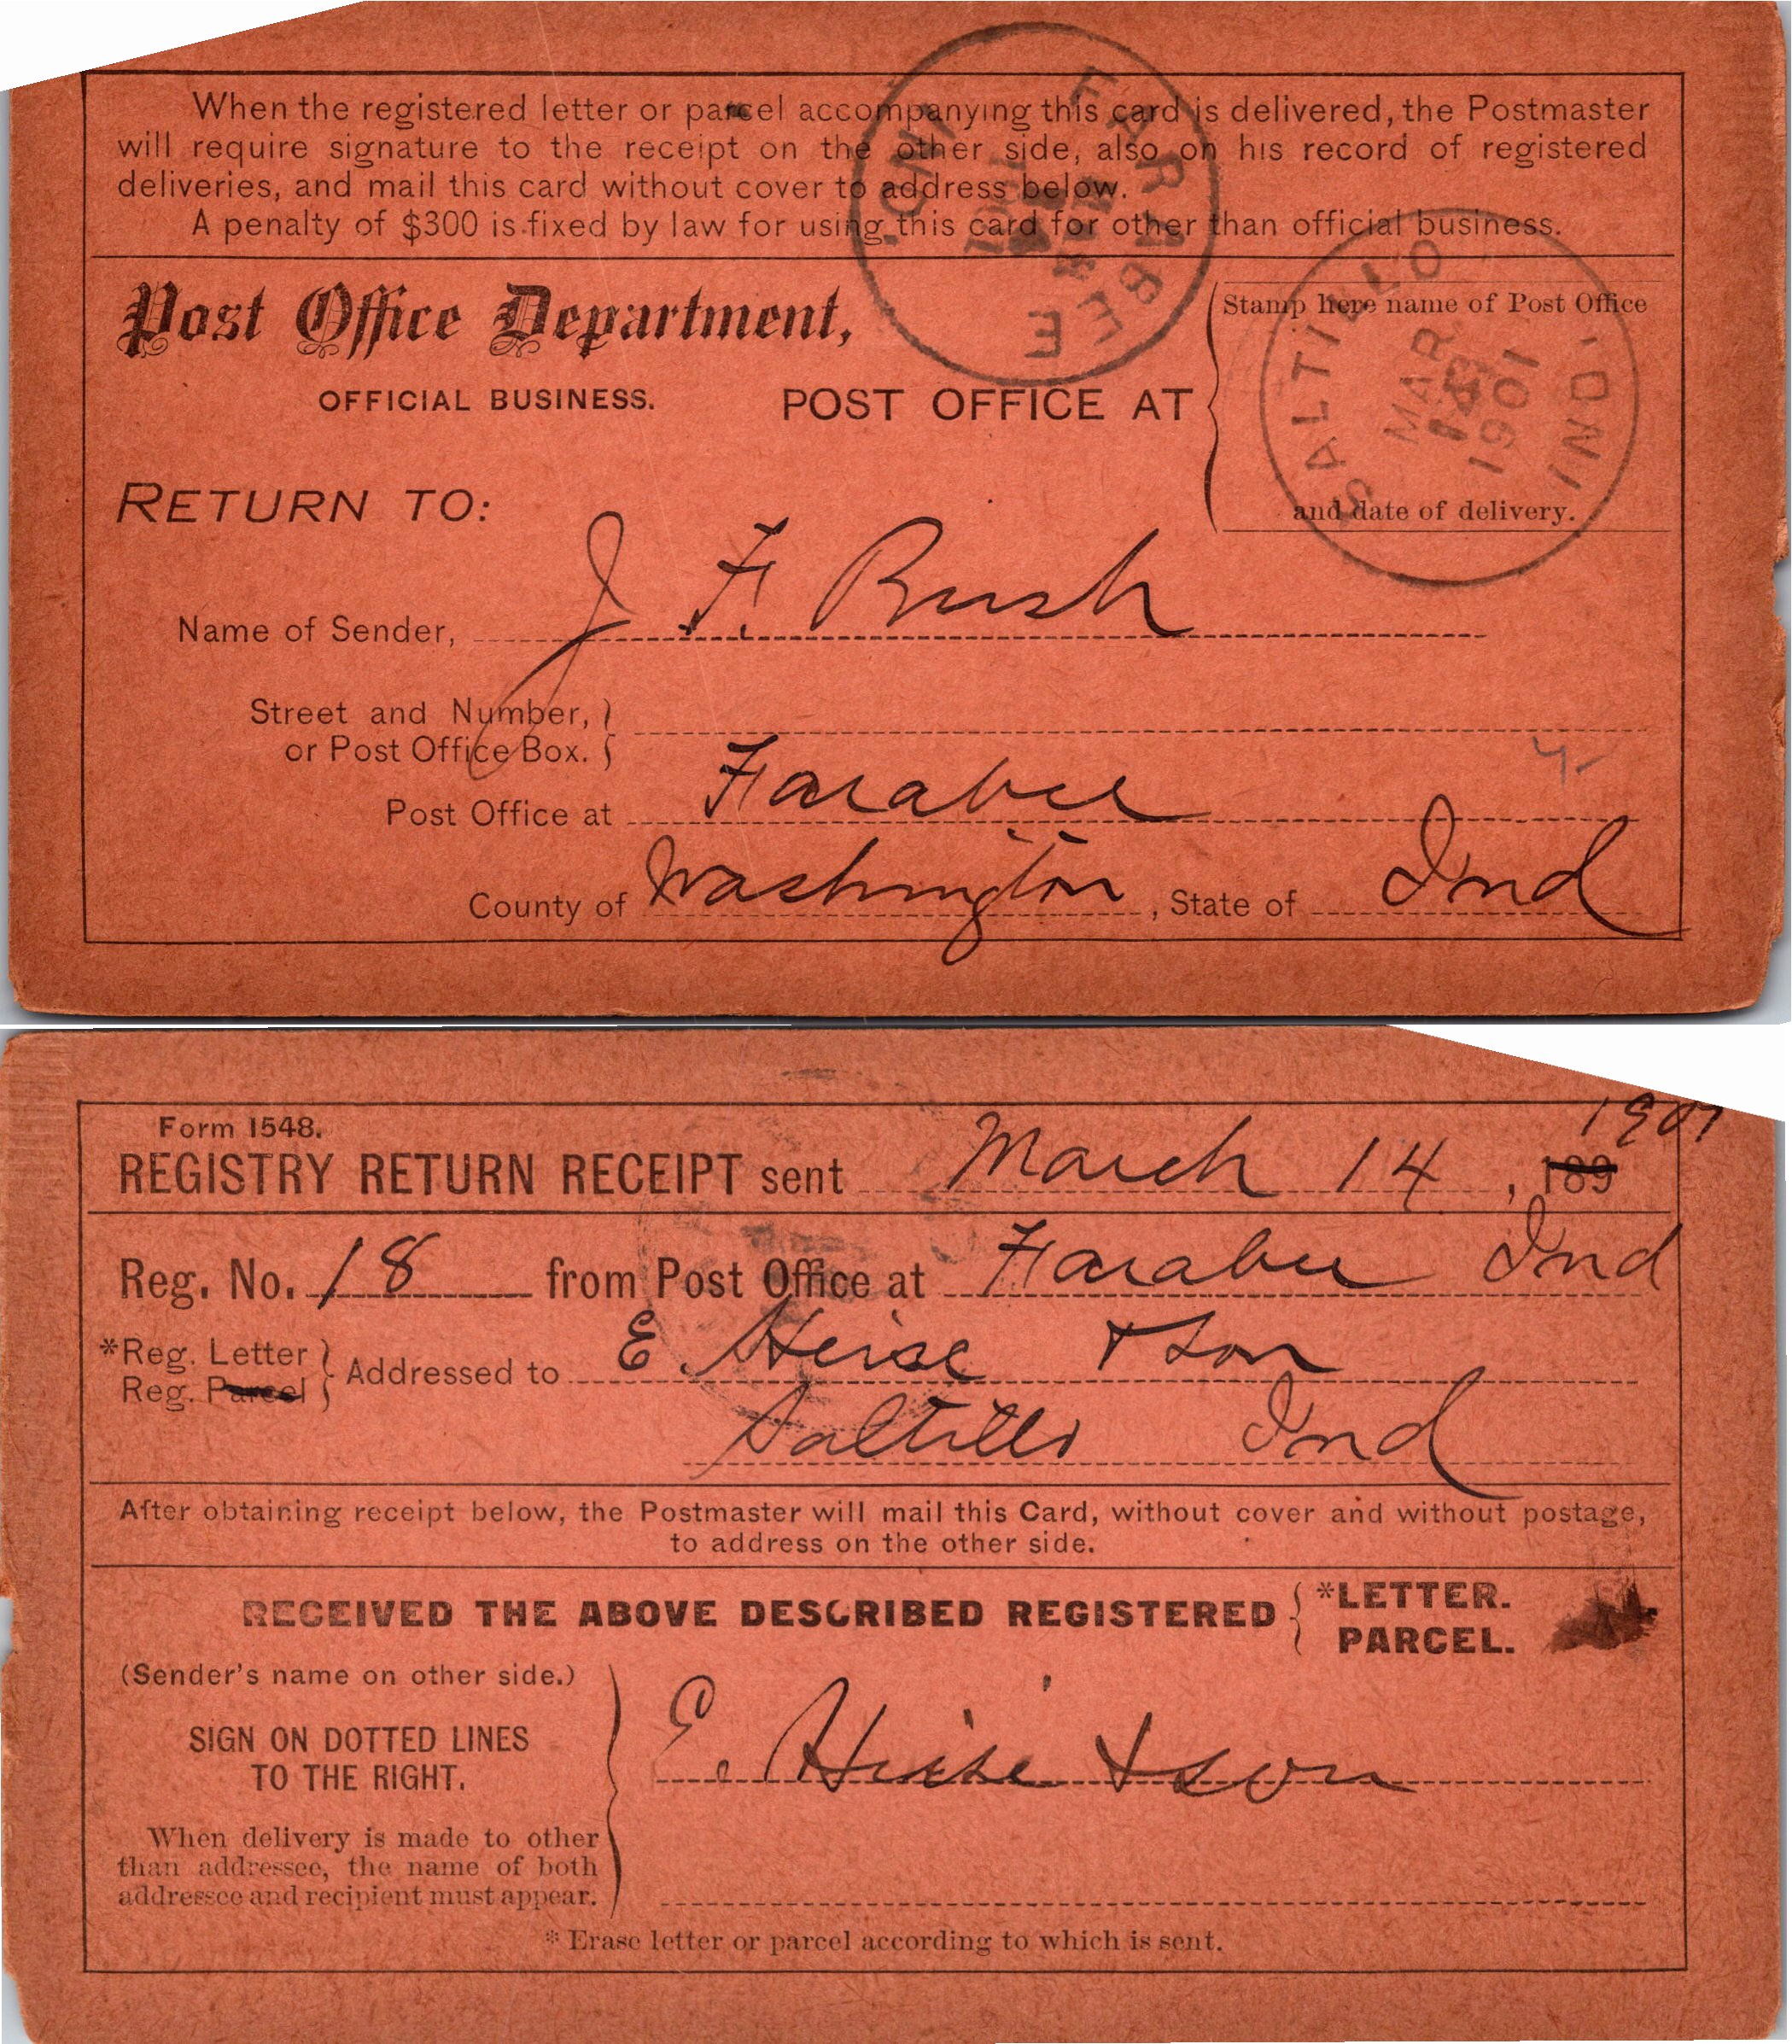 When the registered letter or parcel accompanying this card is delivered, the Postmaster
will require signature to the receipt on the other side, also on his record of registered
deliveries, and mail this card without cover to address below.
A penalty of $300 is fixed by law for using this card for other than official business.
FARABEE IND.
MAR
1901
Post Office Department,
OFFICIAL BUSINESS.
POST OFFICE AT
Stamp here name of Post Office
and date of delivery.
SALTILLO IND.
MAR
1901
RETURN TO:
Name of Sender, J. F. Rush
Street and Number,
or Post Office Box.
Post Office at Farabee
County of Washington, State of Ind
Form 1548.
REGISTRY RETURN RECEIPT sent March 14, 189 1901
Reg. No. 18 from Post Office at Farabee Ind
*Reg. Letter
Reg. Parcel
Addressed to E. Heise & Son
Saltillo Ind
After obtaining receipt below, the Postmaster will mail this Card, without cover and without postage,
to address on the other side.
RECEIVED THE ABOVE DESCRIBED REGISTERED
*LETTER.
PARCEL.
(Sender's name on other side.)
SIGN ON DOTTED LINES
TO THE RIGHT.
E. Heise & Son
When delivery is made to other
than addressee, the name of both
addressee and recipient must appear.
* Erase letter or parcel according to which is sent.